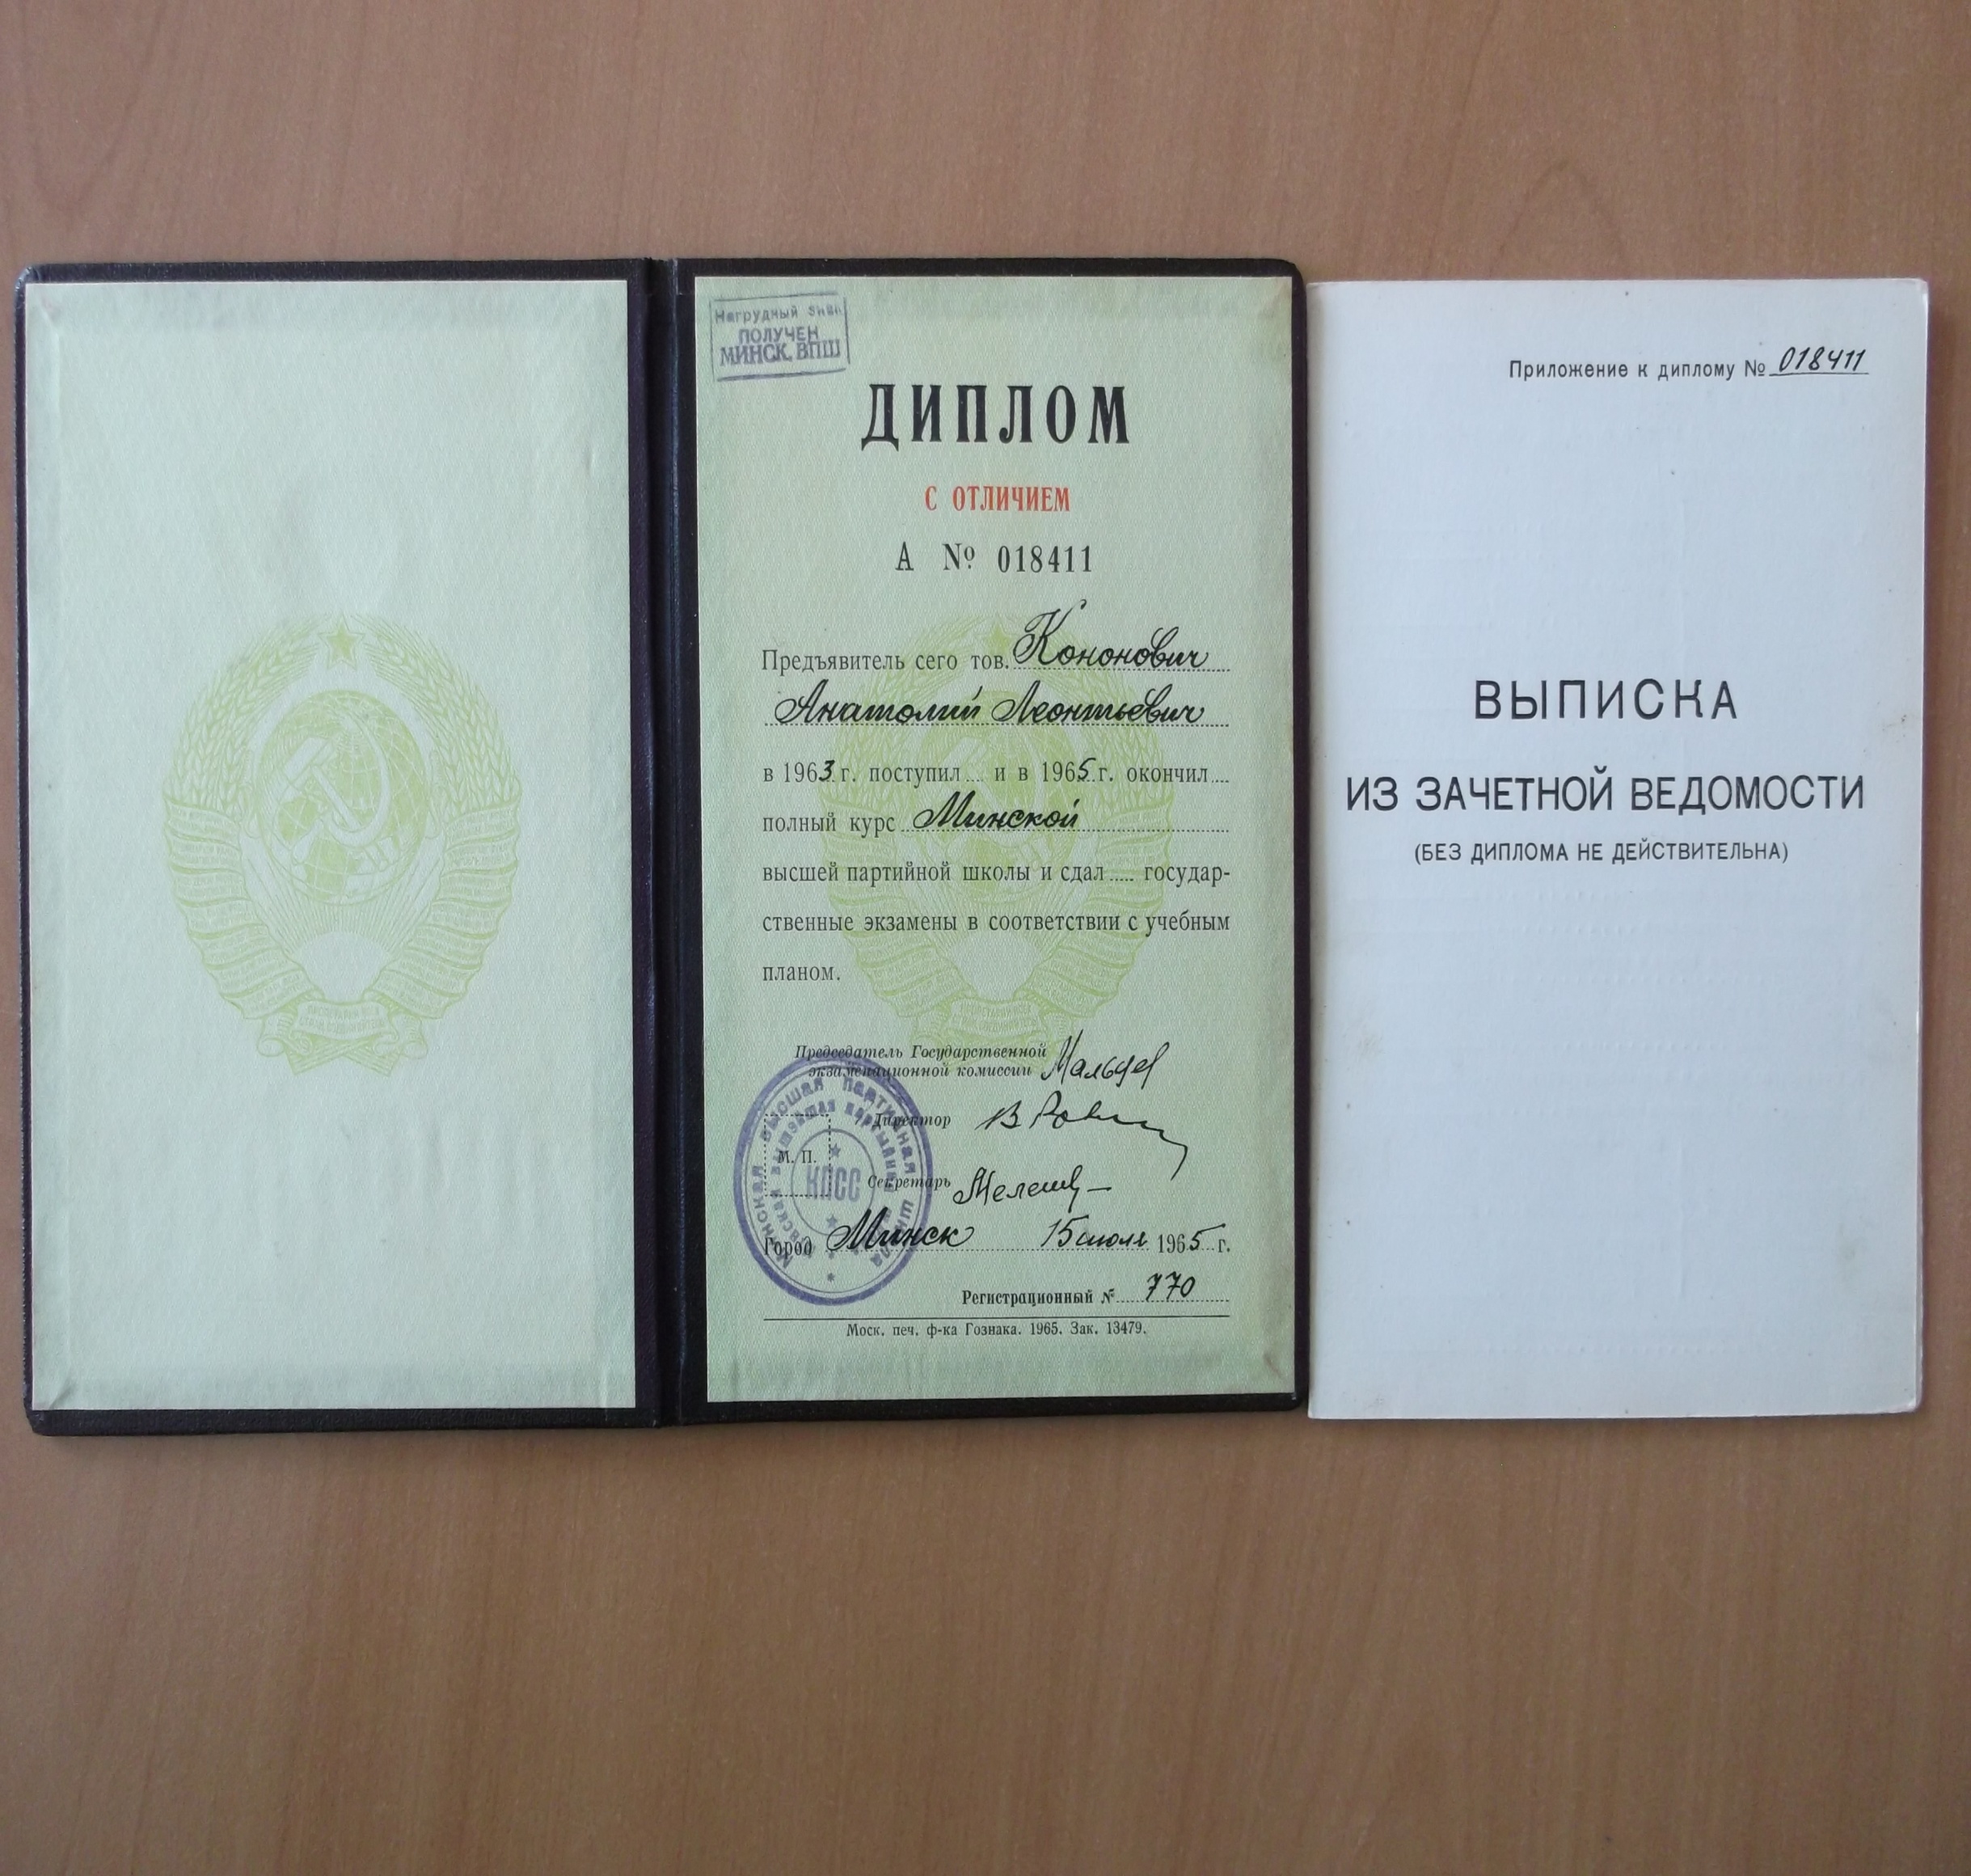 Нагрудный знак
ПОЛУЧЕН
МИНСК. ВПШ
ДИПЛОМ
С ОТЛИЧИЕМ
А № 018411
Предъявитель сего тов. Кононович
Анатолий Леонтьевич
в 1963 г. поступил.... и в 1965 г. окончил....
полный курс Минской
высшей партийной школы и сдал..... государ-
ственные экзамены в соответствии с учебным
планом.
Председатель Государственной
экзаменационной комиссии
Директор
М. П.
Секретарь
Город Минск 15 июля 1965 г.
Регистрационный № 770
Моск. печ. ф-ка Гознака. 1965. Зак. 13479.
Минская высшая партийная школа
КПСС
Приложение к диплому № 018411
ВЫПИСКА
ИЗ ЗАЧЕТНОЙ ВЕДОМОСТИ
(БЕЗ ДИПЛОМА НЕ ДЕЙСТВИТЕЛЬНА)